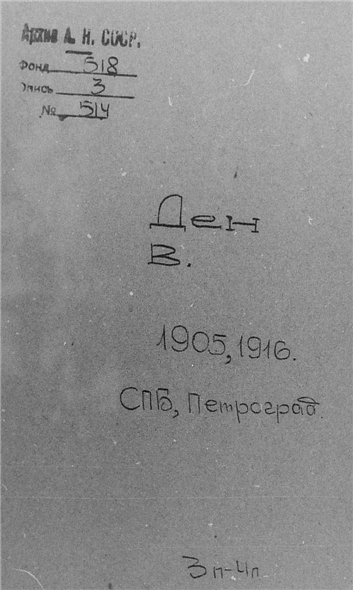 Архив А. Н. СССР.
Фонд 518
Опись 3
№ 514
Ден
В.
1905, 1916.
СПБ, Петроград.
3п-4л